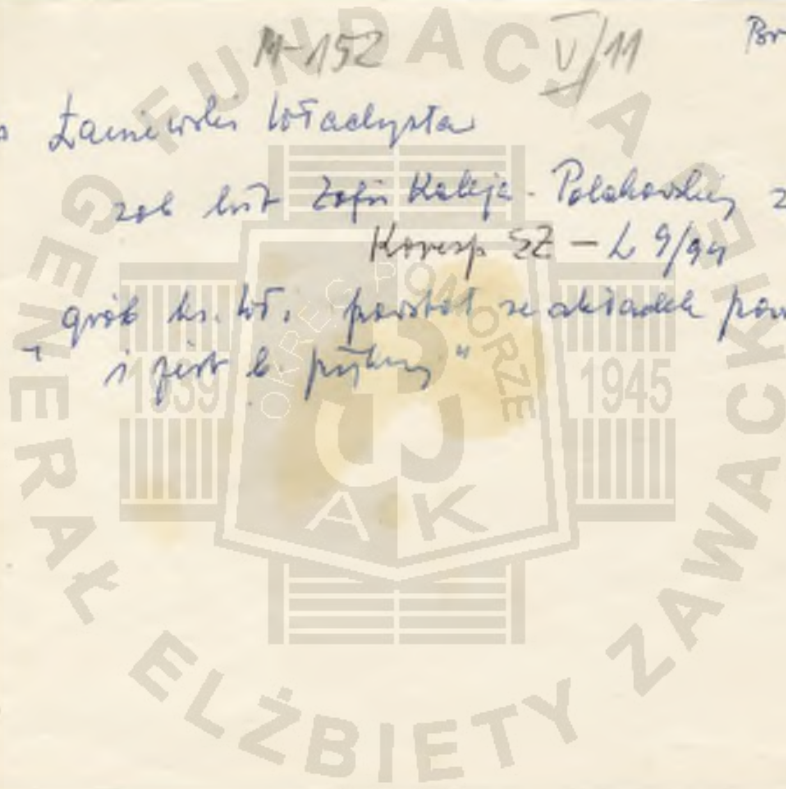 M-152 V/11 Br
Łaniewski Władysła
zob list Zofii Kaleja-Polakowskiej z
Koresp EZ – L 9/94
grób ks. Wł. powstał ze składek
" i jest b. piękny "
FUNDACJA GENERAŁ ELŻBIETY ZAWACKIEJ
OKRĘG POMORZE
1939 1945
AK